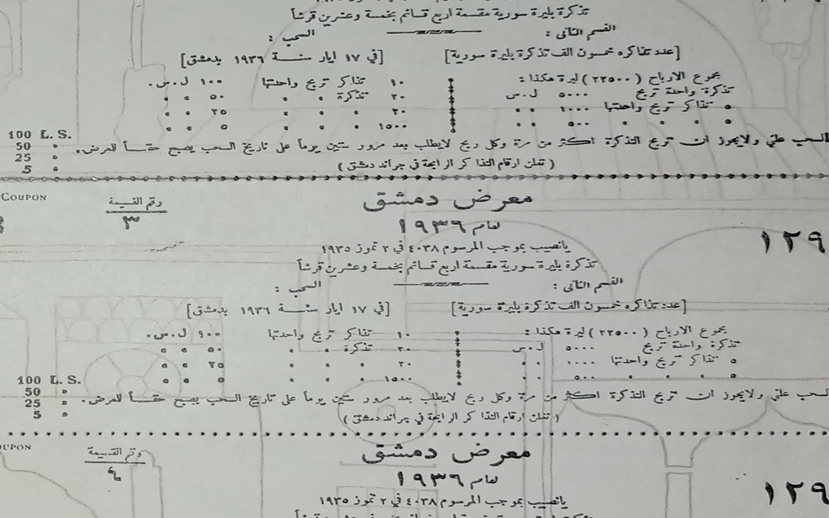 تذكرة بليرة سورية مقسمة اربع قسائم بخمسة وعشرين قرشاً
القسم الثاني : السحب :
[عدد تذاكره خمسون الف تذكرة بليرة سورية] [في ١٧ ايار سنة ١٩٣٦ بدمشق]
مجموع الارباح ( ٢٢٥٠٠ ) ليرة هكذا : ١٠ تذاكر تربح واحدتها ١٠٠ ل.س.
تذكرة واحدة تربح ٥٠٠٠ ل.س ٢٠ تذكرة " " ٥٠ " "
٥ تذاكر تربح واحدتها ١٠٠٠ " " ٢٠ " " " ٢٥ " "
٥ " " " ٥٠٠ " " ١٥٠٠ " " " ٥ " "
السحب علني ولايجوز ان تربح التذكرة اكثر من مرة وكل ربح لايطلب بعد مرور ستين يوماً على تاريخ السحب يصبح حقاً للعرض.
( تعلن ارقام التذاكر الرابحة في جرائد دمشق )
100 L. S.
50 "
25 "
5 "
COUPON
رقم القسيمة
٣
معرض دمشق
لعام ١٩٣٦
١٢٩
يانصيب بموجب المرسوم ٤٠٣٨ في ٢ تموز ١٩٣٥
تذكرة بليرة سورية مقسمة اربع قسائم بخمسة وعشرين قرشاً
القسم الثاني : السحب :
[عدد تذاكره خمسون الف تذكرة بليرة سورية] [في ١٧ ايار سنة ١٩٣٦ بدمشق]
مجموع الارباح ( ٢٢٥٠٠ ) ليرة هكذا : ١٠ تذاكر تربح واحدتها ١٠٠ ل.س.
تذكرة واحدة تربح ٥٠٠٠ ل.س ٢٠ تذكرة " " ٥٠ " "
٥ تذاكر تربح واحدتها ١٠٠٠ " " ٢٠ " " " ٢٥ " "
٥ " " " ٥٠٠ " " ١٥٠٠ " " " ٥ " "
السحب علني ولايجوز ان تربح التذكرة اكثر من مرة وكل ربح لايطلب بعد مرور ستين يوماً على تاريخ السحب يصبح حقاً للعرض.
( تعلن ارقام التذاكر الرابحة في جرائد دمشق )
100 L. S.
50 "
25 "
5 "
رقم القسيمة
٤
معرض دمشق
لعام ١٩٣٦
١٢٩
يانصيب بموجب المرسوم ٤٠٣٨ في ٢ تموز ١٩٣٥